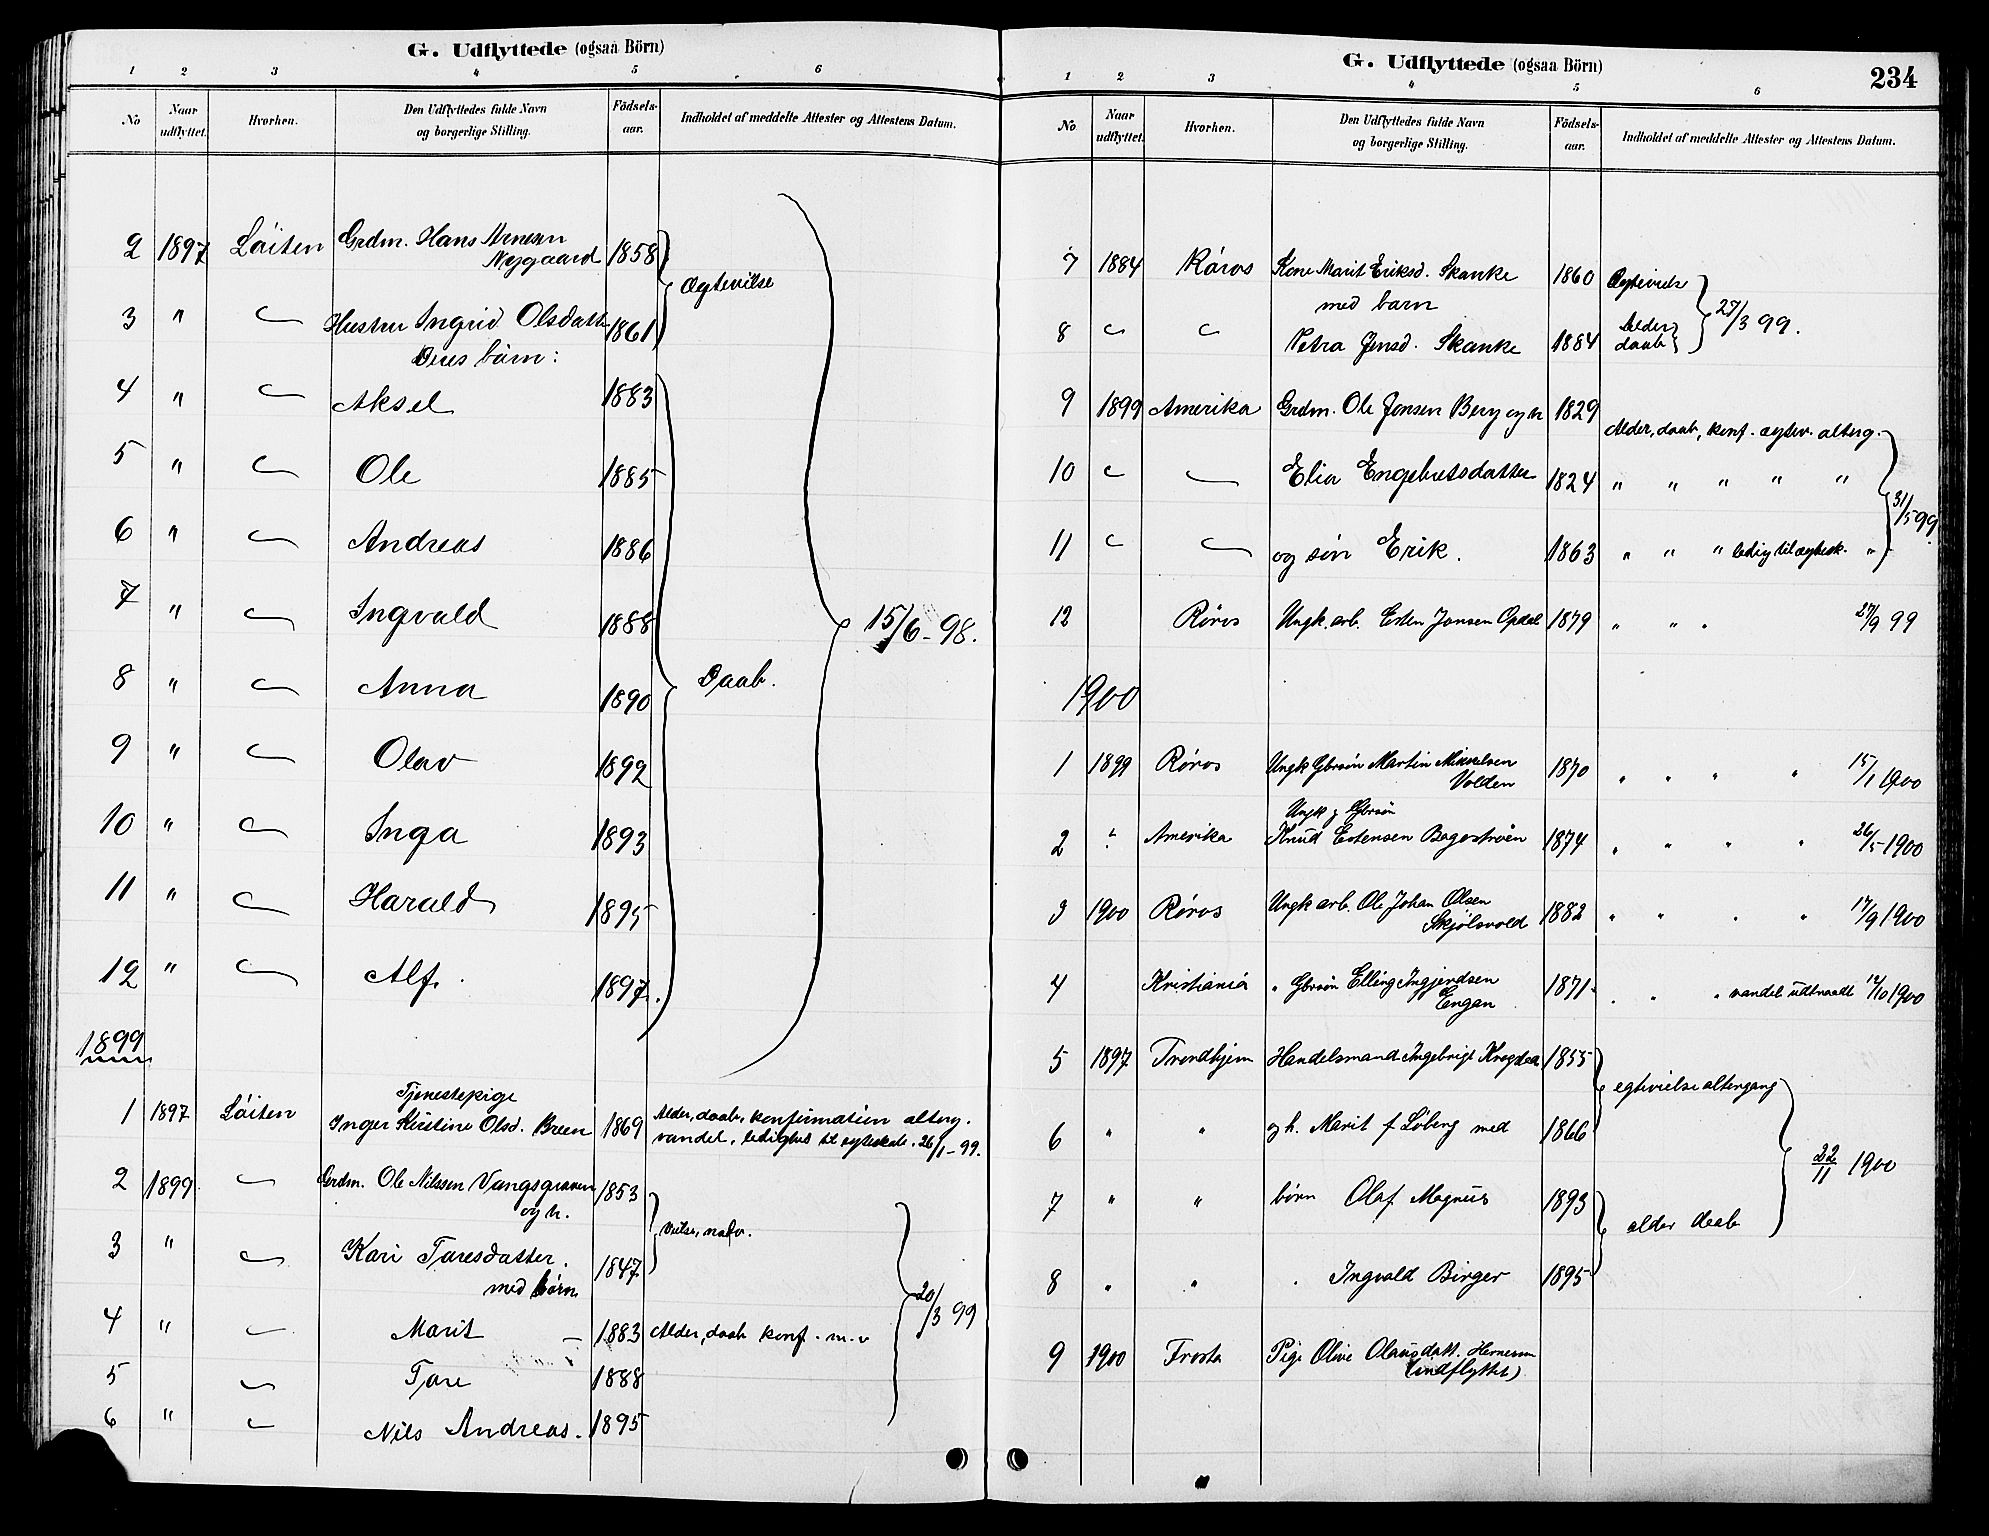 G. Udflyttede (ogsaa Börn)
1 2 3 4 5 6
No Naar udflyttet. Hvorhen. Den Udflyttedes fulde Navn og borgerlige Stilling. Födsels-aar. Indholdet af meddelte Attester og Attestens Datum.
2 1897 Löiten Grdm. Hans Arnesen Nygaard 1858 Ægtevielse
3 " Hustru Ingrid Olsdatter 1861
Deres børn:
4 " Aksel 1883
5 " Ole 1885
6 " Andreas 1886
7 " Ingvald 1888 15/6-98.
8 " Anna 1890 Daab.
9 " Olav 1892
10 " Inga 1893
11 " Harald 1895
12 " Alf. 1897.
1899
Tjenestepige
1 1897 Löiten Inger Kirstine Olsd. Breen 1869 Alder, daab, konfirmation alterg.
vandel, ledighed til ægteskab. 26/1-99.
2 1899 Grdm. Ole Nilssen Vangsgraven 1853
og h.
3 " Kari Taresdatter. 1847
med børn
4 " Marit 1883 Alder, daab konf. m. v 20/3 99
5 Tare 1888
6 " Nils Andreas. 1895
G. Udflyttede (ogsaa Börn)
234
1 2 3 4 5 6
No Naar udflyttet. Hvorhen. Den Udflyttedes fulde Navn og borgerlige Stilling. Födsels-aar. Indholdet af meddelte Attester og Attestens Datum.
7 1884 Røros Kone Marit Eriksd. Skanke 1860 Ægteviels
med barn 27/3 99.
8 Petra Jensd. Skanke 1884 Alder daab
9 1899 Amerika Grdm. Ole Jonsen Berg og h 1829
Alder, daab, konf. ægtev. alterg.
10 Elia Engebretsdatter 1824 " " " " "
31/5 99
11 og søn Erik. 1863 " " " ledig til ægtesk. "
12 Røros Ungk. arb. Esten Jonsen Opdal 1879 " " " 27/9 99
1900
1 1899 Røros Ungk Gbrsøn Martin Mikkelsen Volden 1870 " " " " 15/1 1900
Ungk g Gbrsøn
2 Amerika Knud Estensen Bagostrøen 1874 " " " " 26/5 1900
3 1900 Røros Ungk arb. Ole Johan Olsen Skjølsvold 1882 " " " " 17/9 1900
4 Kristiania " Gbrsøn Elling Ingjerdsen Engan 1871 " " " vandel udtraadt 12/10 1900
5 1897 Trondhjem Handelsmand Ingebrigt Krogdan 1855
egtevielse altergang
6 " " og h. Marit f. Løberg med 1866
22/11 1900
7 " " børn Olaf Magnus 1893
alder daab
8 " " " Ingvald Birger 1895
9 1900 Frosta Pige Olive Olausdatt. Hernesm
(indflyttet)